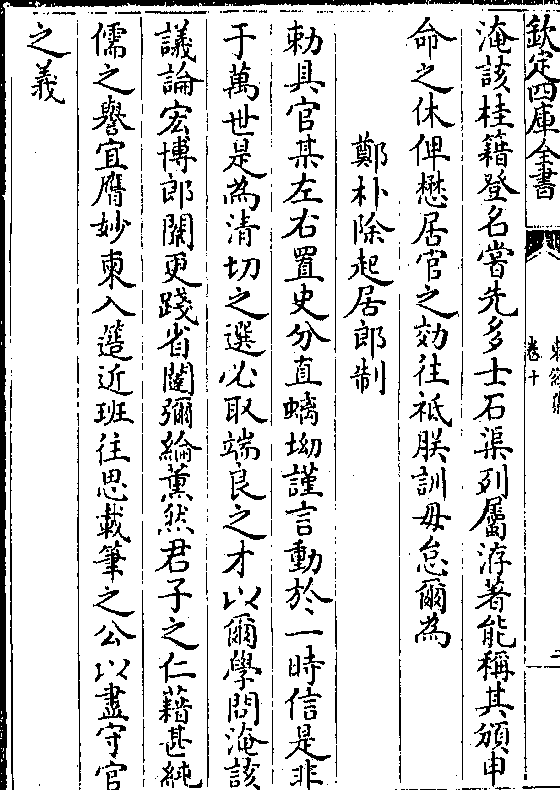 欽定四庫全書
卷十
淹該桂籍登名嘗先多士石渠列屬洊著能稱其頒申
命之休俾懋居官之効往祗朕訓毋怠爾為
鄭朴除起居郎制
勅具官某左右置史分直螭坳謹言動於一時信是非
于萬世是為清切之選必取端良之才以爾學問淹該
議論宏博郎闈更踐省闥彌綸薰然君子之仁藉甚純
儒之譽宜膺妙柬入簉近班往思載筆之公以盡守官
之義